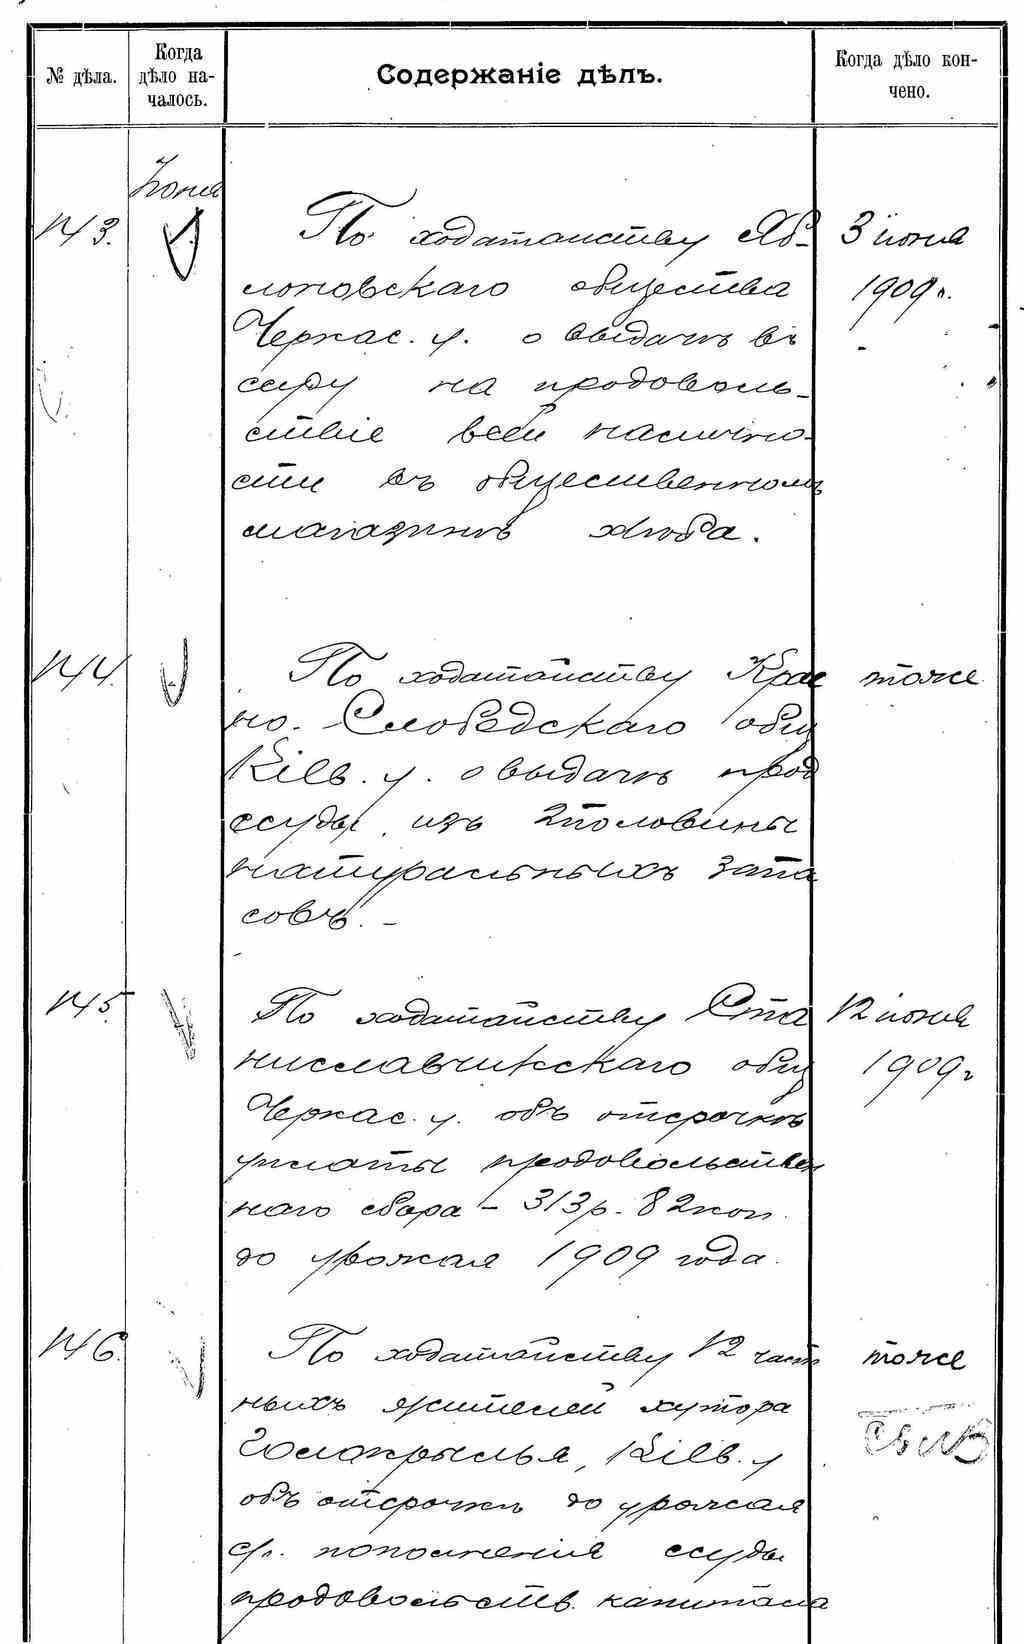 № дѣла.
Когда
дѣло на-
чалось.
Содержаніе дѣлъ.
Когда дѣло кон-
чено.
Іюня
143.
По ходатайству Яб-
3 іюня
лоновскаго общества
1909 г.
Черкас. у. о выдачѣ въ
ссуду на продоволь-
ствіе всей налично-
сти въ общественномъ
магазинѣ хлѣба.
144.
По ходатайству Крас
тоже
но-Слободскаго общ
Кіев. у. о выдачѣ прод
ссуды изъ 2 половины
натуральныхъ запа
совъ.-
145.
По ходатайству Ста
12 іюня
ниславчикскаго общ
1909 г
Черкас. у. объ отсрочкѣ
уплаты продовольствен
наго сбора - 313 р. 82 коп.
до урожая 1909 года.
146.
По ходатайству 12 част
тоже
ныхъ жителей хутора
Голакрылья, Кіев. у
объ отсрочкѣ до урожая
с/г. пополненія ссуды
продовольств. капитала